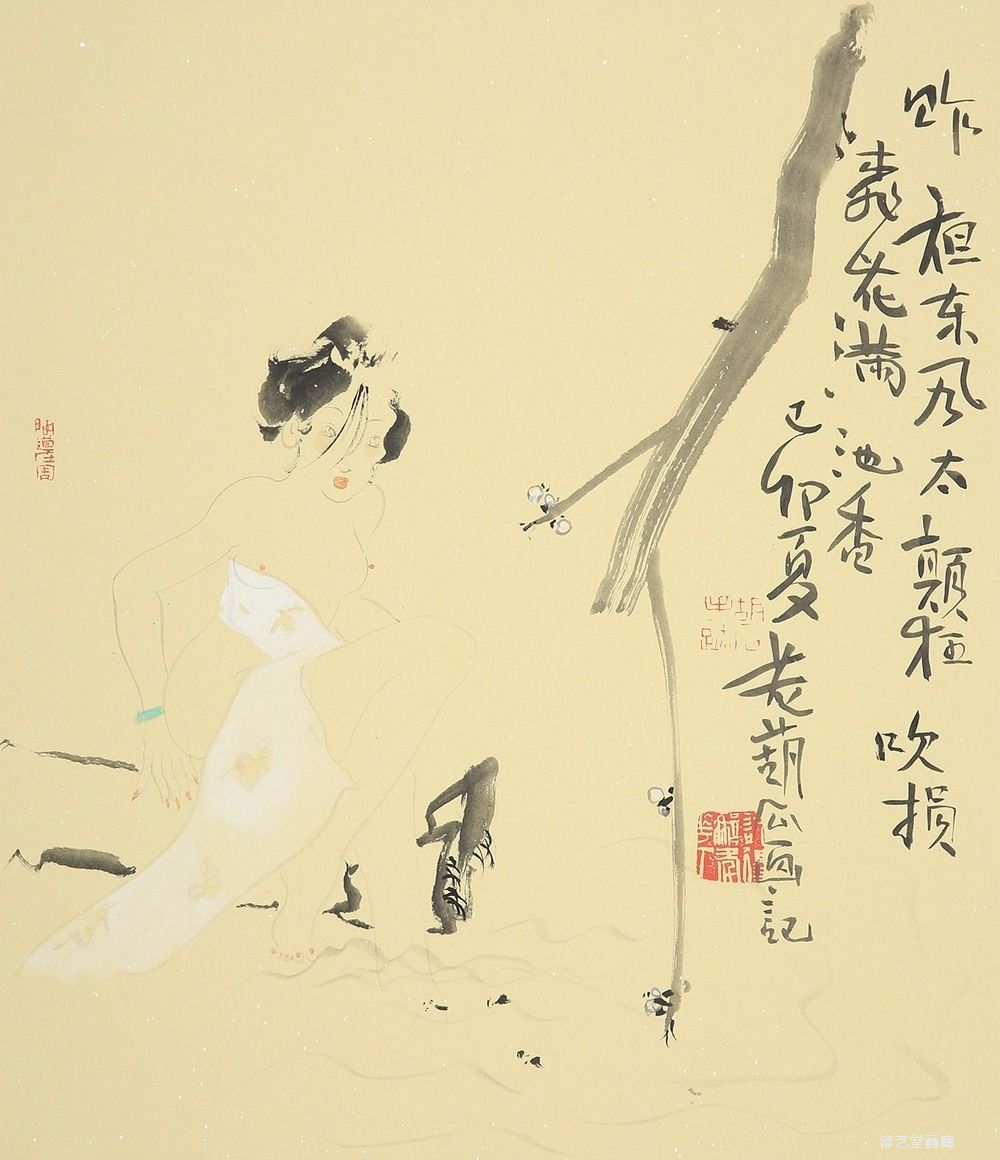 昨夜东风太颠狂吹损
花满池香
己卯夏老葫画記
淳艺堂画廊